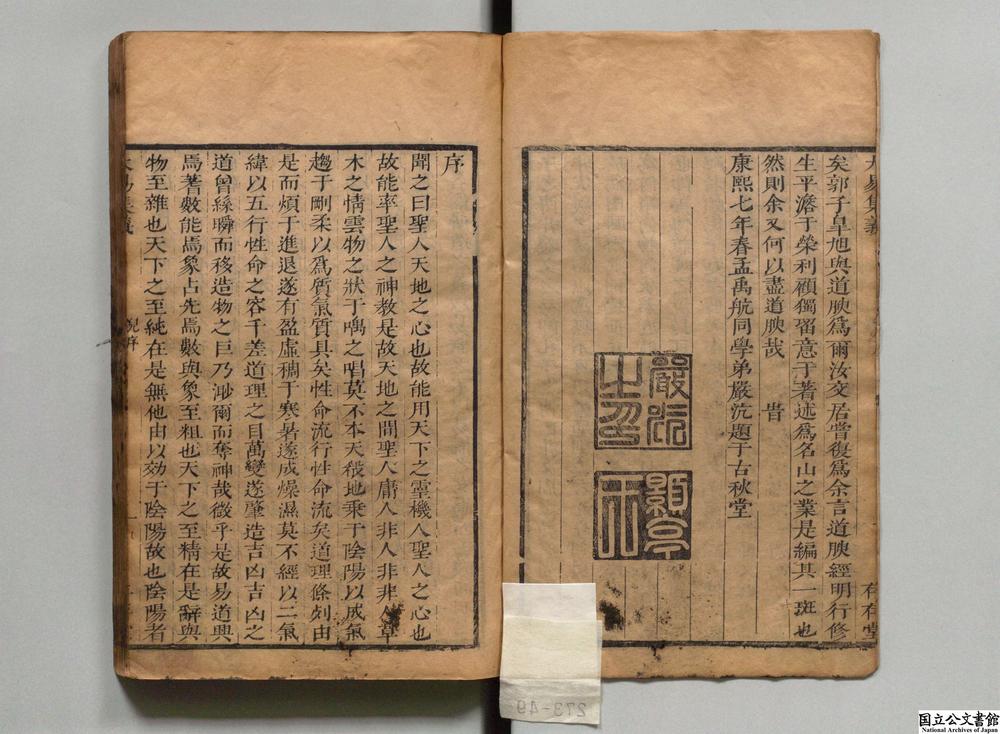 大易集義
存存堂
矣郭子皐旭與道腴爲爾汝交居嘗復爲余言道腴經明行修
生平澹于榮利顧獨留意于著述爲名山之業是編其一斑也
然則余又何以盡道腴哉 旹
康熙七年春孟禹航同學弟嚴沆題于古秋堂
嚴沆之印
顥亭
序
聞之曰聖人天地之心也故能用天下之靈機人聖人之心也
故能率聖人之神敎是故天地之間聖人庸人非人非非人草
木之情雲物之狀于喁之唱莫不本天稂地乘于陰陽以成氣
趨于剛柔以爲質氣質具矣性命流行性命流矣道理條刻由
是而煩于進退遂有盈虛稠于寒暑遂成燥濕莫不經以二氣
緯以五行性命之容千差道理之目萬變遂肇造吉凶吉凶之
道曾緜瞬而移造物之巨乃渺爾而奪神哉微乎是故易道興
焉著數能焉象占先焉數與象至粗也天下之至精在是辭與
物至雜也天下之至純在是無他由以効于陰陽故也陰陽者
大易集義
序
一
273-49
国立公文書館
National Archives of Japan